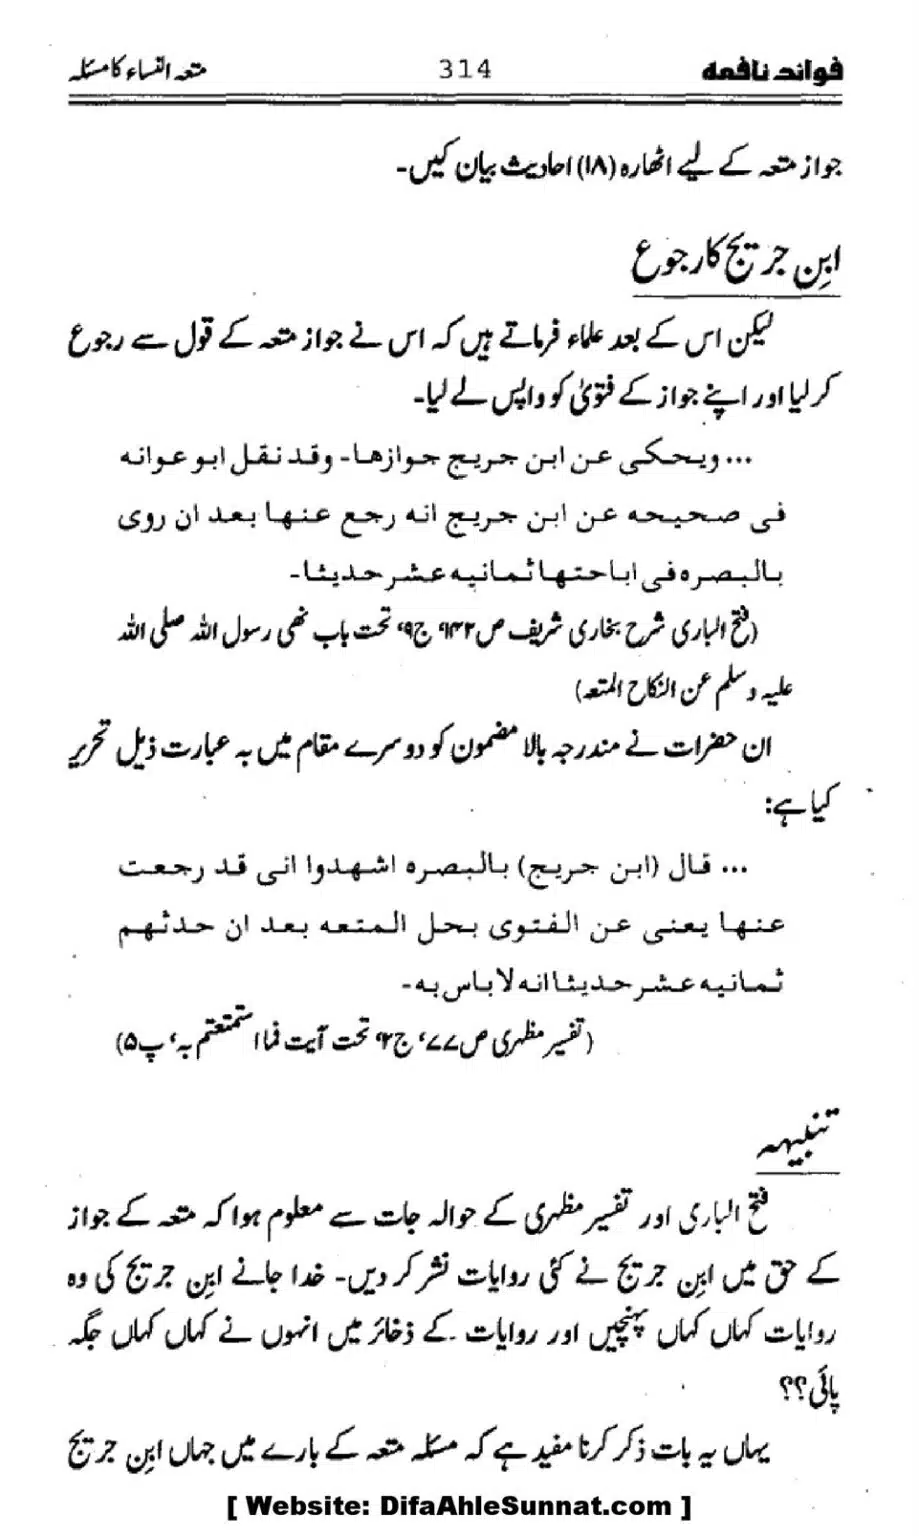 فوائد نافعہ 314 متعۃ النساء کا مسئلہ
جواز متعہ کے لیے اٹھارہ (۱۸) احادیث بیان کیں۔
ابنِ جریج کا رجوع
لیکن اس کے بعد علماء فرماتے ہیں کہ اس نے جواز متعہ کے قول سے رجوع
کر لیا اور اپنے جواز کے فتویٰ کو واپس لے لیا۔
... ویحکی عن ابن جریج جوازھا۔ وقد نقل ابو عوانہ
فی صحیحہ عن ابن جریج انہ رجع عنھا بعد ان روی
بالبصرہ فی اباحتھا ثمانیہ عشر حدیثا۔
(فتح الباری شرح بخاری شریف ص ۱۴۲، ج ۹، تحت باب نھی رسول اللہ صلی اللہ
علیہ وسلم عن النکاح المتعہ)
ان حضرات نے مندرجہ بالا مضمون کو دوسرے مقام میں بہ عبارت ذیل تحریر
کیا ہے:
... قال (ابن جریج) بالبصرہ اشھدوا انی قد رجعت
عنھا یعنی عن الفتوی بحل المتعہ بعد ان حدثھم
ثمانیہ عشر حدیثا انہ لا باس بہ۔
(تفسیر مظہری ص ۷۷، ج ۲، تحت آیت فما استمتعتم بہ، پ ۵)
تنبیہہ
فتح الباری اور تفسیر مظہری کے حوالہ جات سے معلوم ہوا کہ متعہ کے جواز
کے حق میں ابنِ جریج نے کئی روایات نشر کر دیں۔ خدا جانے ابنِ جریج کی وہ
روایات کہاں کہاں پہنچیں اور روایات کے ذخائر میں انہوں نے کہاں کہاں جگہ
پائی؟؟
یہاں یہ بات ذکر کرنا مفید ہے کہ مسئلہ متعہ کے بارے میں جہاں ابنِ جریج
[ Website: DifaAhleSunnat.com ]